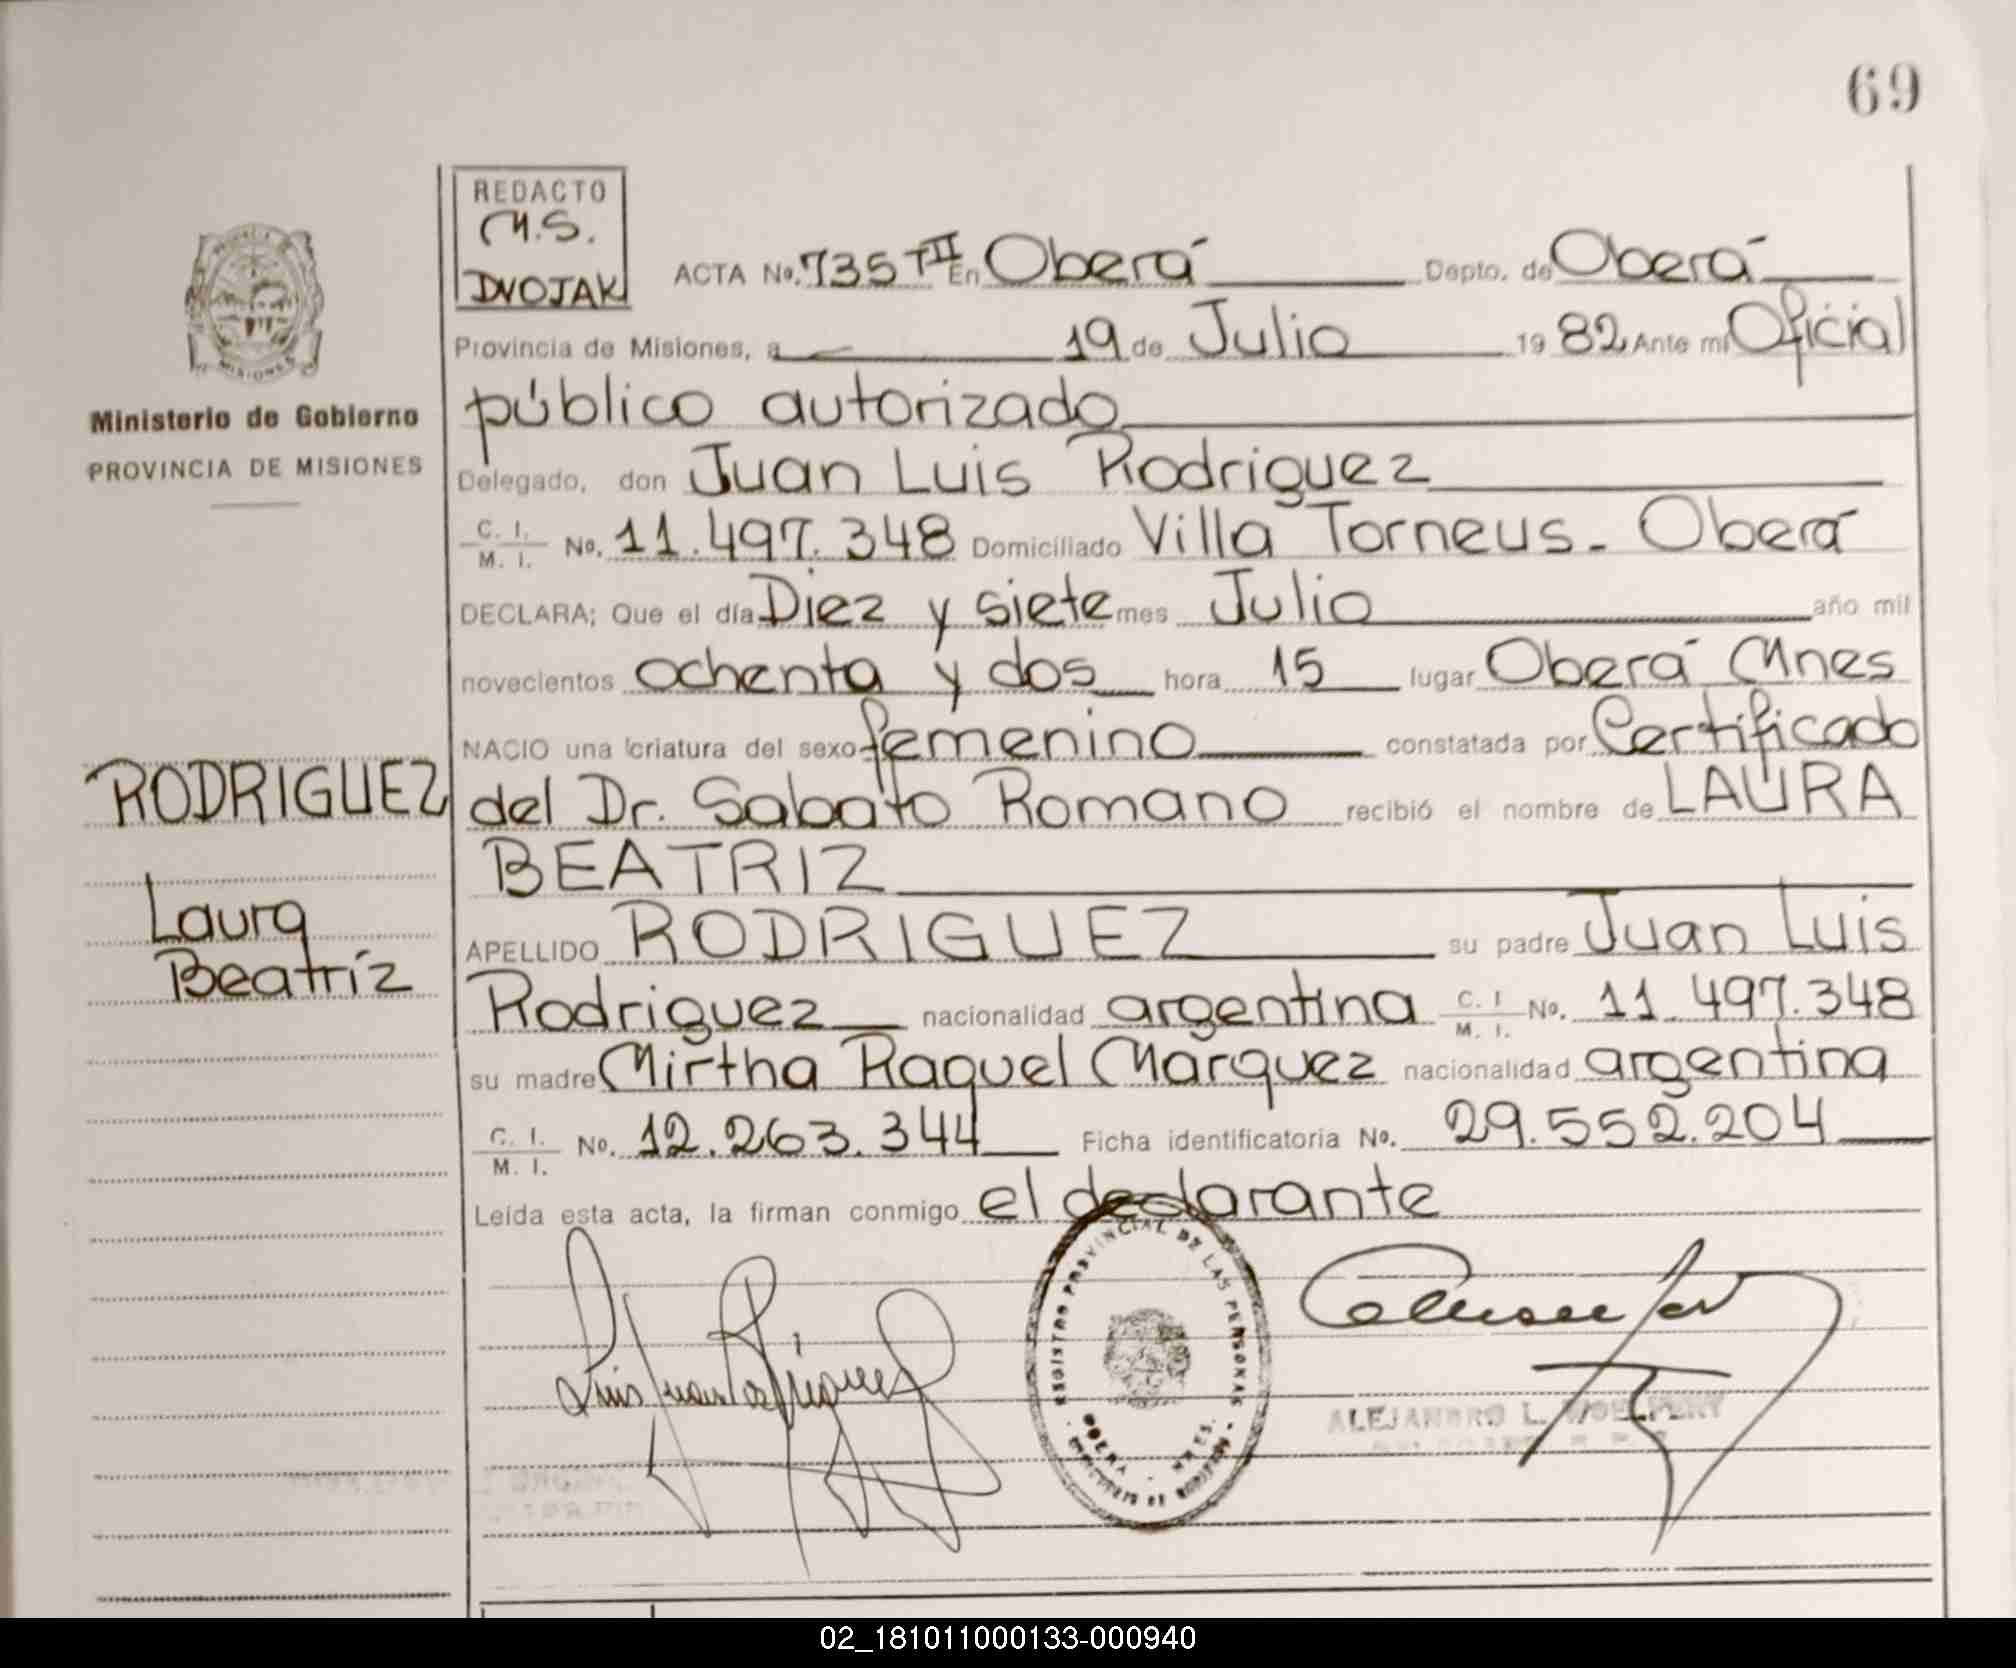 69
REDACTO
M.S.
DVOJAK
ACTA No. 735 TII En Oberá Depto. de Oberá
Provincia de Misiones, a 19 de Julio 1982 Ante mi Oficial
público autorizado
Ministerio de Gobierno
PROVINCIA DE MISIONES
Delegado, don Juan Luis Rodriguez
C. I. M. I. No. 11.497.348 Domiciliado Villa Torneus - Oberá
DECLARA; Que el día Diez y siete mes Julio año mil
novecientos ochenta y dos hora 15 lugar Oberá Mnes
NACIO una criatura del sexo femenino constatada por Certificado
RODRIGUEZ
del Dr. Sabato Romano recibió el nombre de LAURA
BEATRIZ
Laura
Beatríz
APELLIDO RODRIGUEZ su padre Juan Luis
Rodriguez nacionalidad argentina C. I M. I. No. 11.497.348
su madre Mirtha Raquel Marquez nacionalidad argentina
C. I. M. I. No. 12.263.344 Ficha identificatoria No. 29.552.204
Leída esta acta, la firman conmigo el declarante
REGISTRO PROVINCIAL DE LAS PERSONAS
OBERA - MNES.
ALEJANDRO L.
02_181011000133-000940